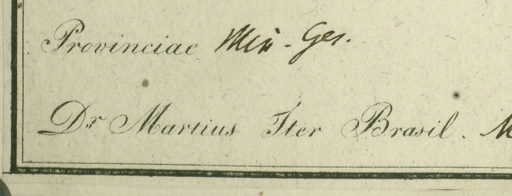 Provinciae Min. Ger.
Dr Martius Iter Brasil. M